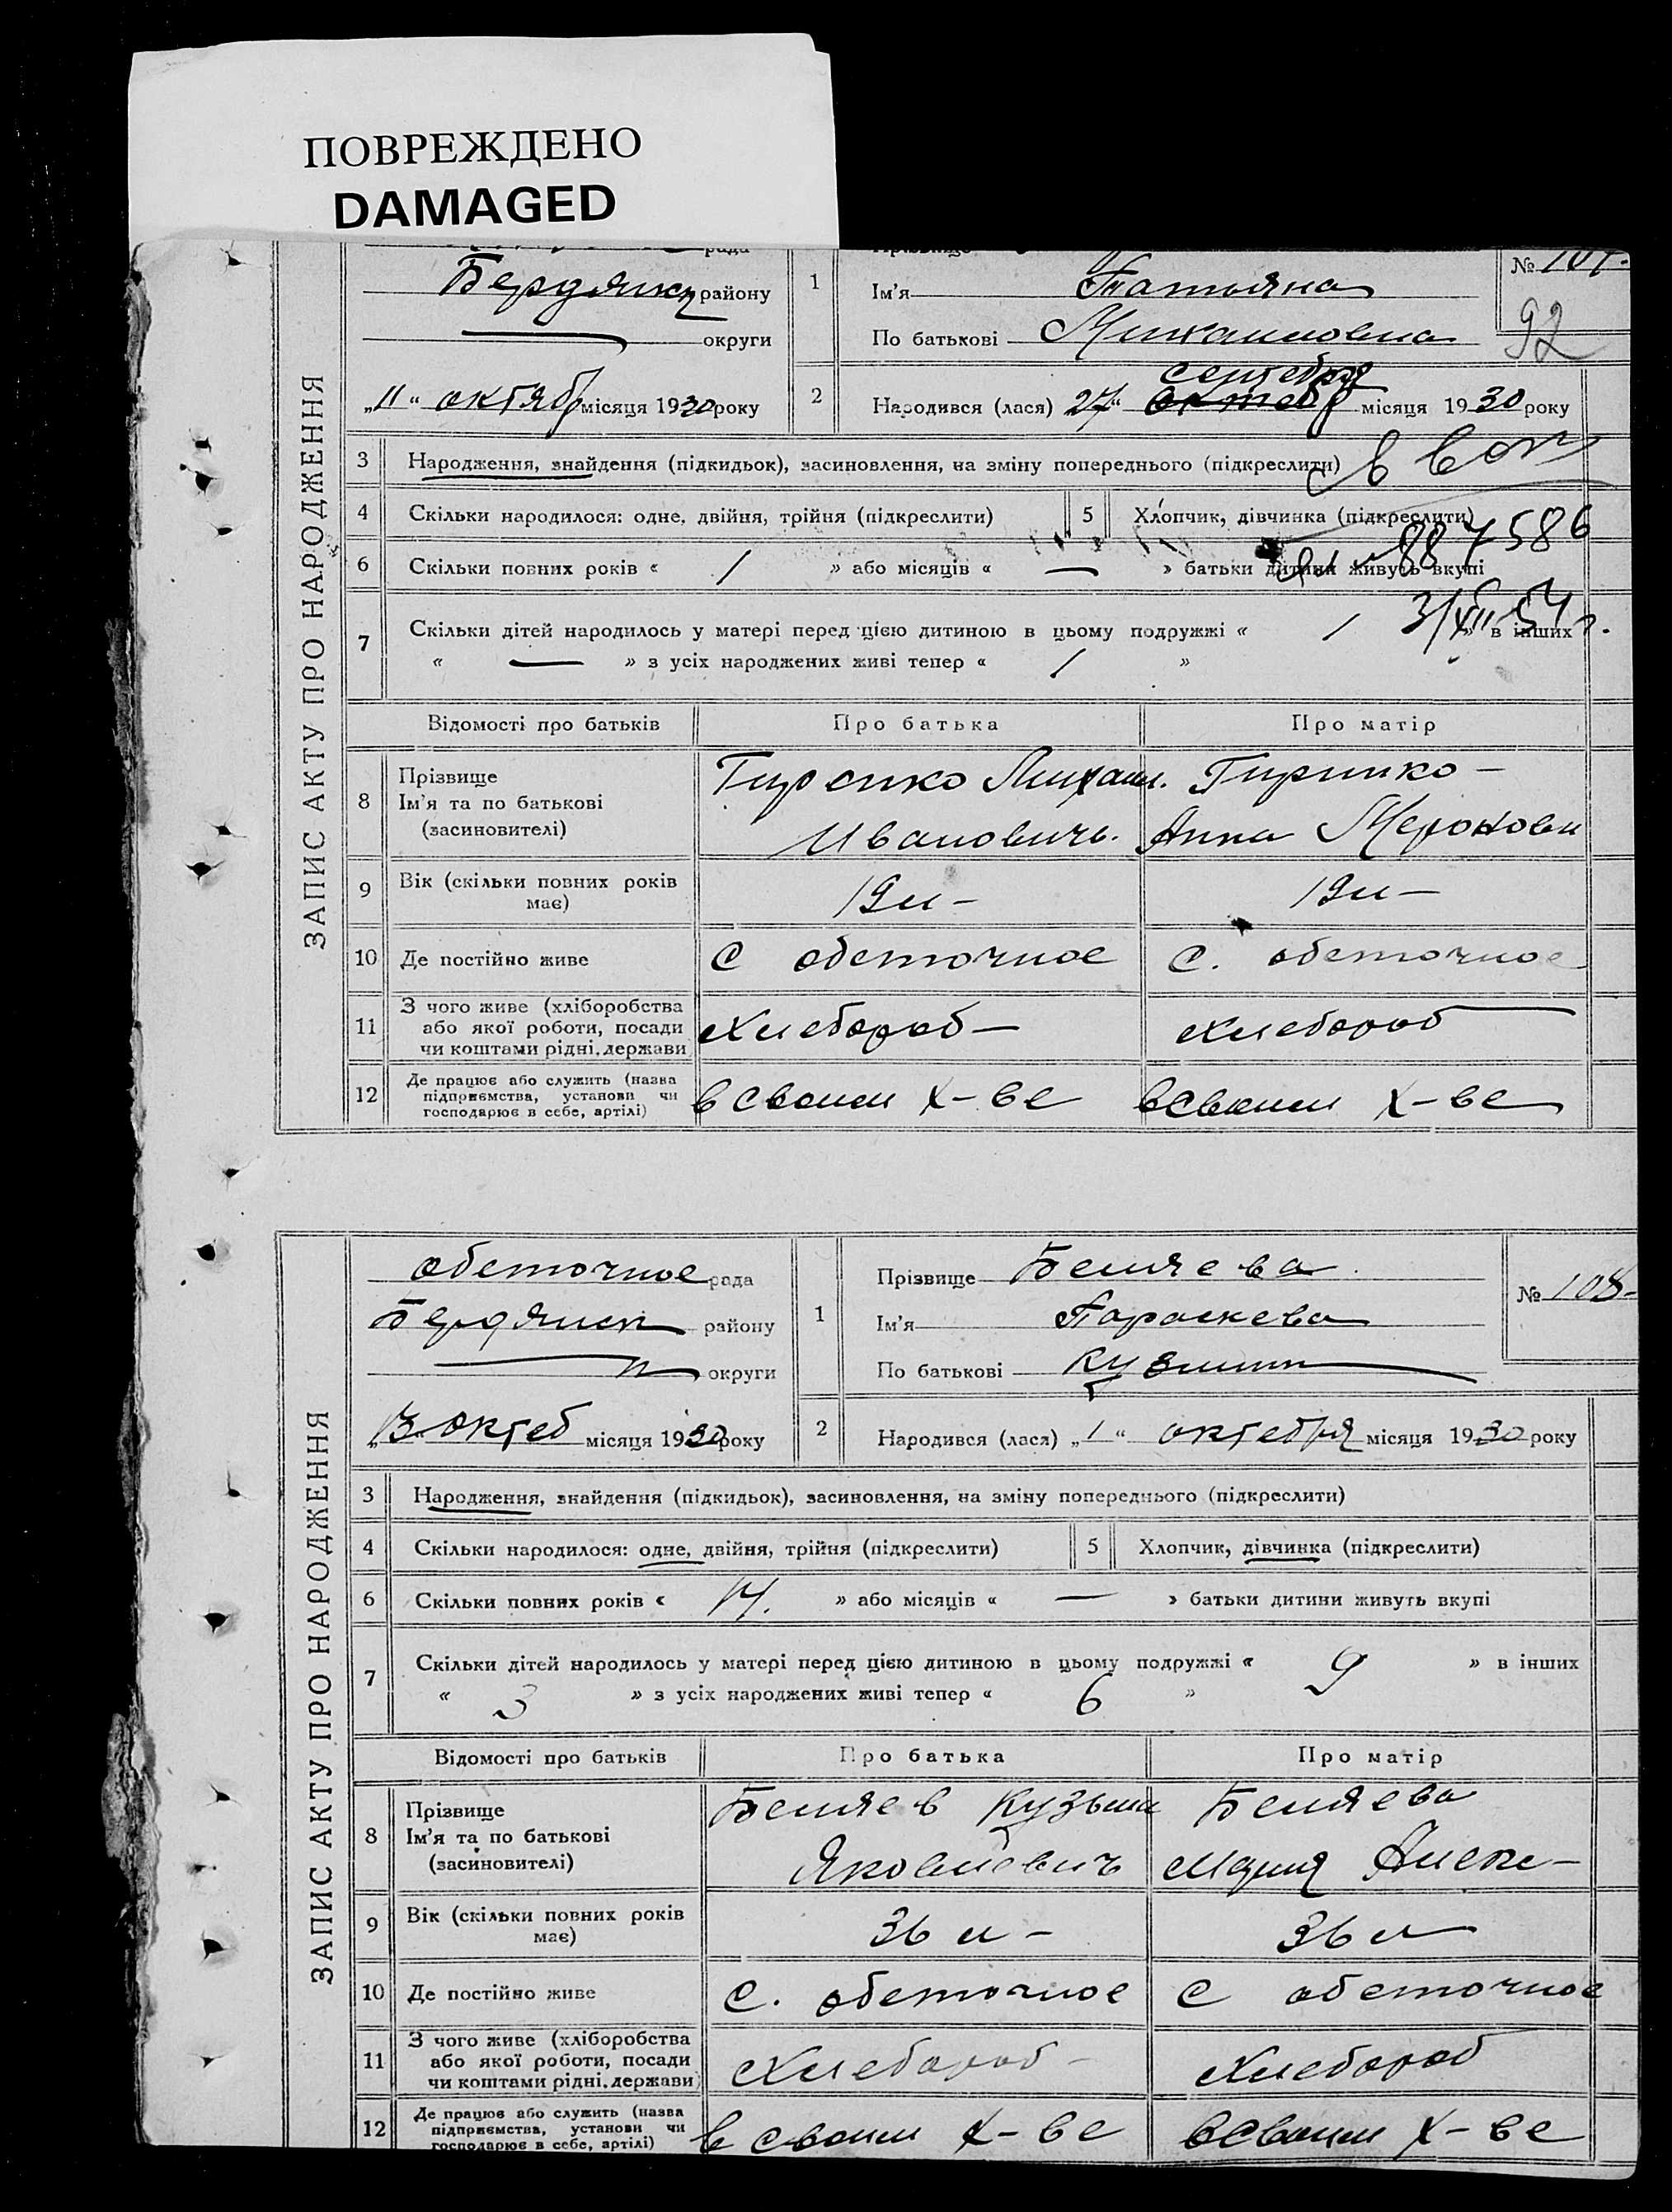 ПОВРЕЖДЕНО
DAMAGED
ЗАПИС АКТУ ПРО НАРОДЖЕННЯ
рада
району
округи
„11“ октябр місяця 1930 року
1
Ім'я Татьяна
По батькові Михаиловна
№ 107.
92
2
Народився (лася) 27“ октебр сентебря місяця 1930 року
3 Народження, знайдення (підкидьок), засиновлення, на зміну попереднього (підкреслити)
4 Скільки народилося: одне, двійня, трійня (підкреслити) 5 Хлопчик, дівчинка (підкреслити)
887586
6 Скільки повних років « 1 » або місяців « — » батьки дитини живуть вкупі
3/XII 54 г.
7 Скільки дітей народилось у матері перед цією дитиною в цьому подружжі « 1 » в інших
« — » з усіх народжених живі тепер « 1 »
Відомості про батьків Про батька Про матір
8 Прізвище
Ім'я та по батькові
(засиновителі)
Гиренко Михаил.
Ивановичъ.
Гиринко –
Анна
9 Вік (скільки повних років має) 19 л – 19 л –
10 Де постійно живе С обеточное С. обеточное
11 З чого живе (хліборобства
або якої роботи, посади
чи коштами рідні, держави
Хлебороб – Хлебороб
12 Де працює або служить (назва
підприємства, установи чи
господарює в себе, артілі)
в своем х-ве в своем х-ве
ЗАПИС АКТУ ПРО НАРОДЖЕННЯ
обеточное рада
Бердянск району
округи
„13 октеб місяця 1930 року
1
Прізвище Беляева
Ім'я Параскева
По батькові
№ 108.
2
Народився (лася) „1“ октебря місяця 1930 року
3 Народження, знайдення (підкидьок), засиновлення, на зміну попереднього (підкреслити)
4 Скільки народилося: одне, двійня, трійня (підкреслити) 5 Хлопчик, дівчинка (підкреслити)
6 Скільки повних років « » або місяців « — » батьки дитини живуть вкупі
7 Скільки дітей народилось у матері перед цією дитиною в цьому подружжі « 9 » в інших
« 3 » з усіх народжених живі тепер « 6 »
Відомості про батьків Про батька Про матір
8 Прізвище
Ім'я та по батькові
(засиновителі)
Беляев Кузьма
Яковлевичъ
Беляева
Мария Алекс–
9 Вік (скільки повних років має) 36 л – 36 л
10 Де постійно живе С. обеточное С обеточное
11 З чого живе (хліборобства
або якої роботи, посади
чи коштами рідні, держави
Хлебороб – Хлебороб
12 Де працює або служить (назва
підприємства, установи чи
господарює в себе, артілі)
в своем х-ве в своем х-ве